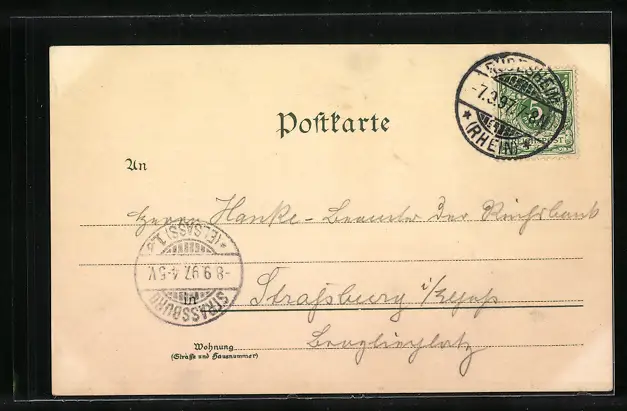 RÜDESHEIM
-7.9.97.
* (RHEIN) *
Postkarte
An
Herrn Hanke - Beamter der Reichsbank
* (ELSASS) 1.
-8.9.97. 4-5V.
STRASSBURG
Straßburg i/Elsaß
Broglieplatz
Wohnung
(Straße und Hausnummer)